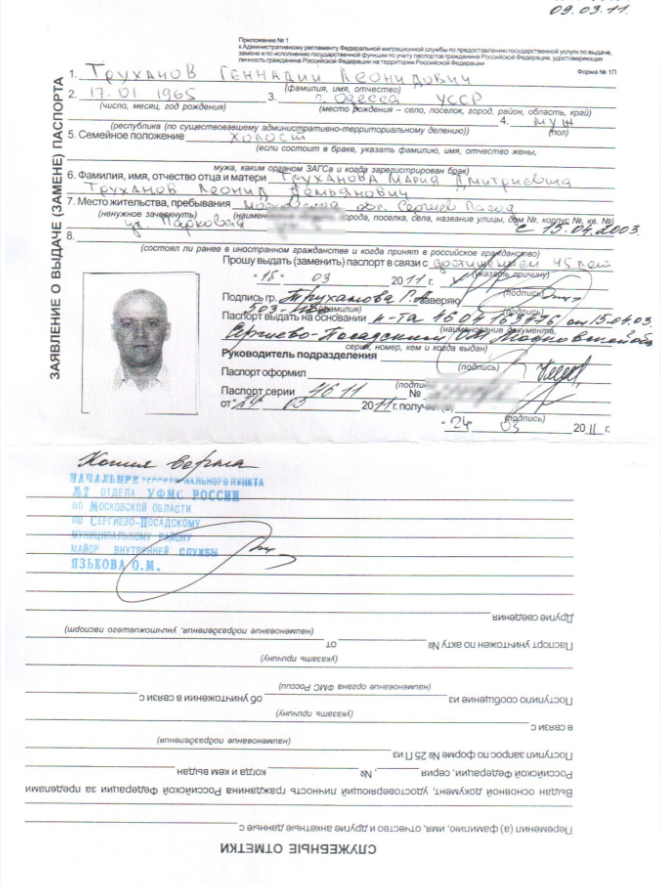 09.03.11.
Приложение № 1
к Административному регламенту Федеральной миграционной службы по предоставлению государственной услуги по выдаче,
замене и по исполнению государственной функции по учету паспортов гражданина Российской Федерации, удостоверяющих
личность гражданина Российской Федерации на территории Российской Федерации
Форма № 1П
ЗАЯВЛЕНИЕ О ВЫДАЧЕ (ЗАМЕНЕ) ПАСПОРТА
1. Труханов Геннадий Леонидович
(фамилия, имя, отчество)
2. 17.01 1965 3. г. Одесса УССР
(число, месяц, год рождения) (место рождения – село, поселок, город, район, область, край)
4. муж
(республика (по существовавшему административно-территориальному делению)) (пол)
5. Семейное положение холост
(если состоит в браке, указать фамилию, имя, отчество жены,
мужа, каким органом ЗАГСа и когда зарегистрирован брак)
6. Фамилия, имя, отчество отца и матери Труханова Мария Дмитриевна
Труханов Леонид Демьянович
7. Место жительства, пребывания Московская обл. Сергиев Посад
(ненужное зачеркнуть) города, поселка, села, название улицы, дом №, корпус №, кв. №)
ул Парковая с 15.04.2003
8.
(состоял ли ранее в иностранном гражданстве и когда принят в российское гражданство)
Прошу выдать (заменить) паспорт в связи с достижением 45 лет
(указать причину)
"18" 03 2011 г.
(подпись)
Подпись гр. Труханова Г.Л. заверяю
(фамилия) (подпись)
Паспорт выдать на основании п-та 46 04 от 15.04.03.
(наименование документа,
Сергиево-Посадским ОМ Московской обл
серия, номер, кем и когда выдан)
Руководитель подразделения
(подпись)
Паспорт оформил
(подпись)
Паспорт серии 46 11 №
от "24" 03 2011 г. получил (а)
"24" 03 2011 г.
Копия верна
НАЧАЛЬНИК ТЕРРИТОРИАЛЬНОГО ПУНКТА
№2 ОТДЕЛА УФМС РОССИИ
ПО МОСКОВСКОЙ ОБЛАСТИ
ПО СЕРГИЕВО-ПОСАДСКОМУ
МУНИЦИПАЛЬНОМУ РАЙОНУ
МАЙОР ВНУТРЕННЕЙ СЛУЖБЫ
ЯЗЫКОВА О.М.
СЛУЖЕБНЫЕ ОТМЕТКИ
Переменил (а) фамилию, имя, отчество и другие анкетные данные с
Выдан основной документ, удостоверяющий личность гражданина Российской Федерации за пределами
Российской Федерации, серия , № когда и кем выдан
Поступил запрос по форме № 25 П из
(наименование подразделения)
в связи с
(указать причину)
Поступило сообщение из об уничтожении в связи с
(наименование органа ФМС России)
(указать причину)
Паспорт уничтожен по акту № от
(наименование подразделения, уничтожившего паспорт)
Другие сведения